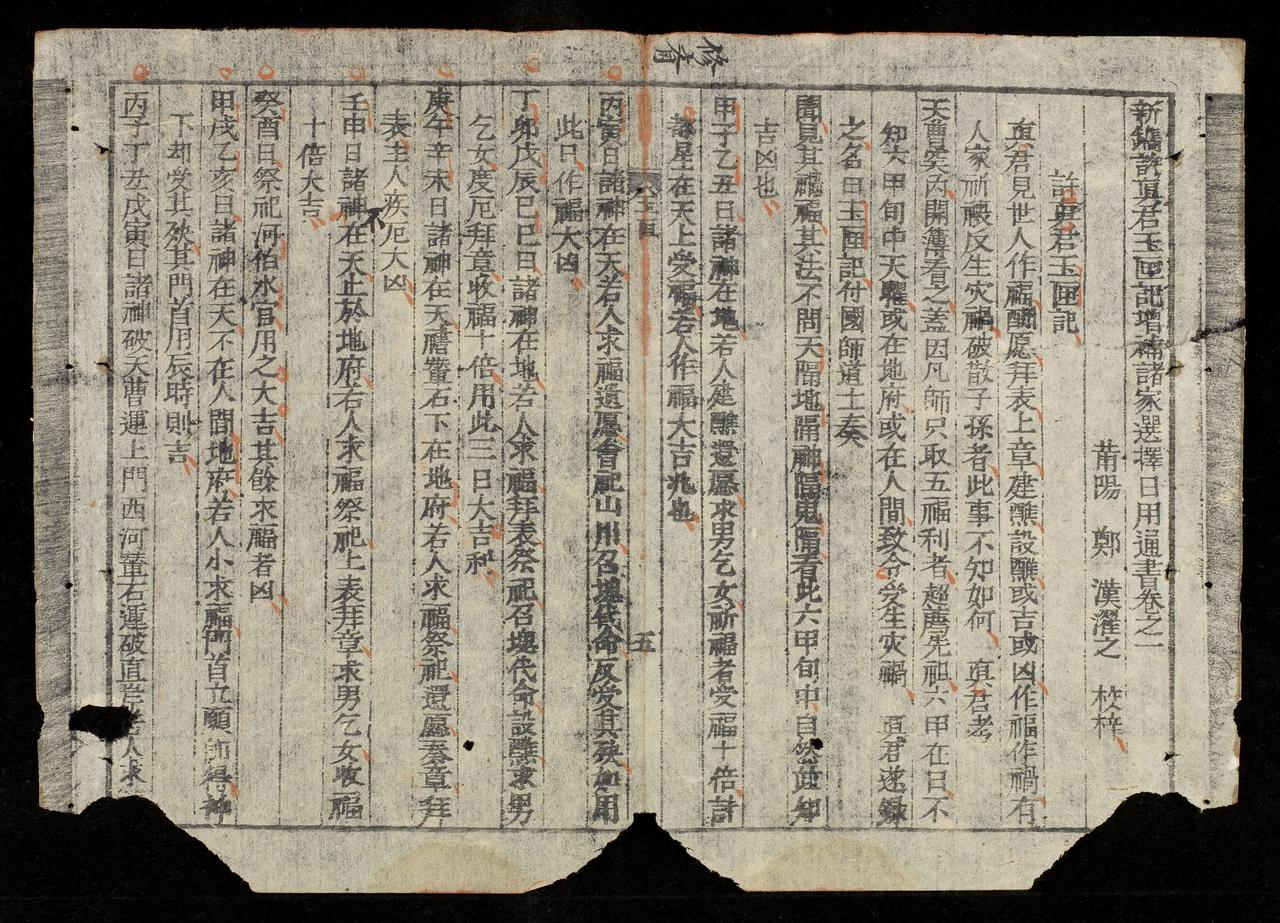 新鐫許真君玉匣記增補諸家選擇日用通書卷之一
莆陽 鄭 漢濯之 校梓
許真君玉匣記
真君見世人作福酬愿拜表上章建醮設醮或吉或凶作福作禍有
人家祈禳反生灾禍破散子孫者此事不知如何 真君考
天曹案内開簿看之盖因凡師只取五福利者超薦先祖六甲在日不
知六甲旬中天曜或在地府或在人間致令受生灾禍 真君速錄
之名曰玉匣記付國師道士奏
聞易其禍福其法不問天隔地隔神隔鬼隔看此六甲旬中自然䓁知
吉凶也
甲子乙丑日諸神在地若人建醮還愿求男乞女祈福者受福十倍計
都星在天上受福若人作福大吉兆也
五
丙寅日諸神在天若人求福還愿會祀山川召塊代命反受其殃無用
此日作福大凶
丁卯戊辰巳巳日諸神在地若人求福拜表祭祀召塊代命設醮求男
乞女度厄拜章收福十倍用此三日大吉利
庚午辛未日諸神在天礬石下在地府若人求福祭祀還愿奏章拜
表主人疾厄大凶
壬申日諸神不在天止於地府若人求福祭祀上表拜章求男乞女收福
十倍大吉
癸酉日祭祀河伯水官用之大吉其餘求福者凶
甲戌乙亥日諸神在天不在人間地府若人小求福門首立願即得神
下却受其殃其門首用辰時則吉
丙子丁丑戊寅日諸神破天曹運上門西河輦石運破直若人求
修有